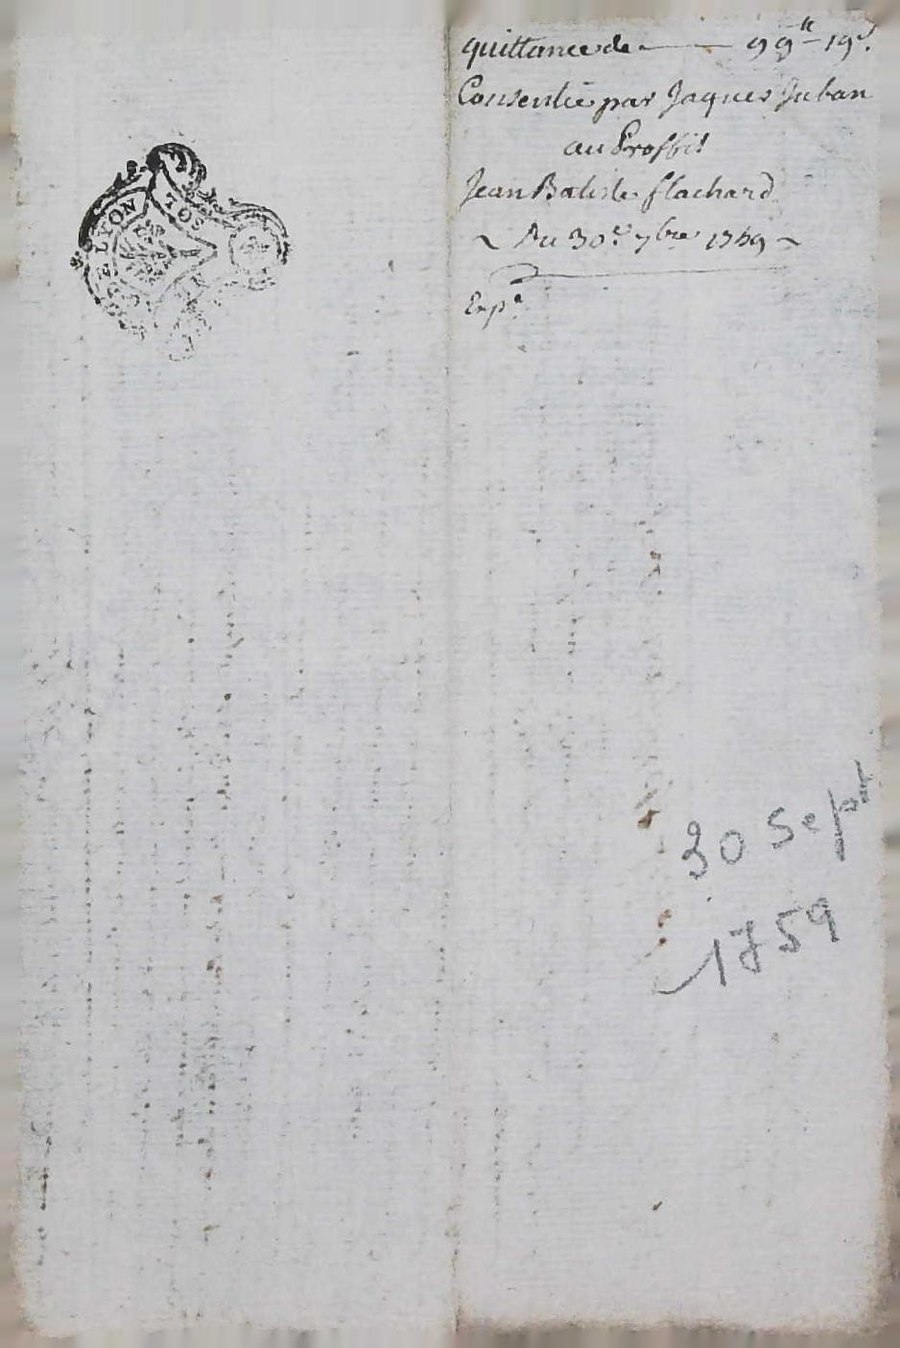 DE LYON
TOS
quittance de — 99tt 19s.
Consentie par Jaques Juban
au Proffit
Jean Batiste flachard
~ Du 30e 7bre 1759 ~
Expe
30 Sept
1759